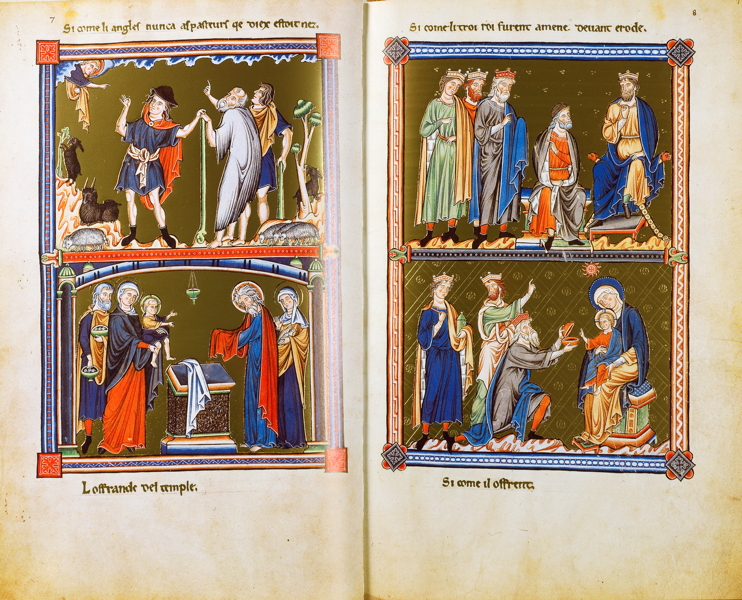 7
Si come li angles nunca as pasteurs qe diex estoit nez.
L offrande del temple.
8
Si come li troi roi furent amene devant erode.
Si come il offrent.